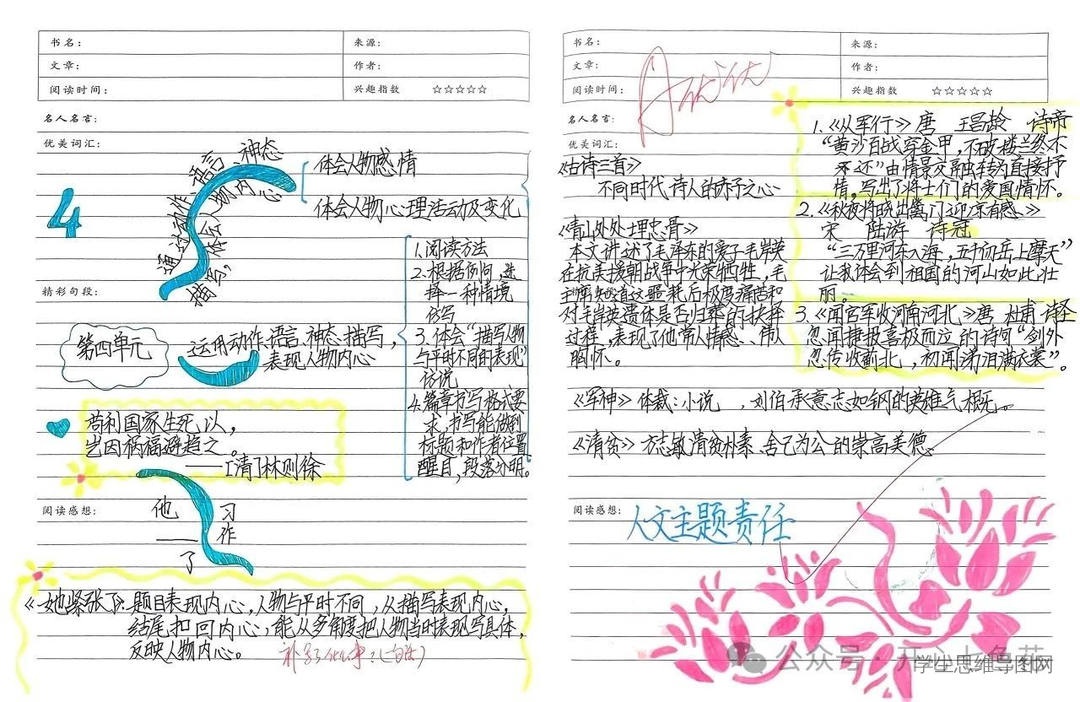 书名：
来源：
文章：
作者：
阅读时间：
兴趣指数 ☆☆☆☆☆
名人名言：
优美词汇：
4
通过动作、语言、神态
描写，体会人物内心
体会人物感情
体会人物心理活动及变化
1.阅读方法
2.根据例句，选
择一种情境
仿写
3.体会“描写人物
与平时不同的表现”
仿说
4.篇章书写格式要
求，书写能做到
标题和作者位置
醒目，段落分明。
精彩句段：
第四单元
运用动作、语言、神态描写，
表现人物内心
苟利国家生死以，
岂因祸福避趋之。
——[清]林则徐
阅读感想：
他
——
了
习
作
《她紧张了》：题目表现内心，人物与平时不同，从描写表现内心，
结尾扣回内心；能从多角度把人物当时表现写具体，
反映人物内心。
书名：
来源：
文章：
作者：
阅读时间：
兴趣指数 ☆☆☆☆☆
名人名言：
优美词汇：
《古诗三首》
不同时代诗人的赤子之心
《青山处处埋忠骨》
本文讲述了毛泽东的爱子毛岸英
在抗美援朝战争中光荣牺牲，毛
主席知道这噩耗后极度痛苦和
对毛岸英遗体是否归葬的抉择
过程，表现了他常人情感、伟人
胸怀。
1.《从军行》唐 王昌龄 诗帝
“黄沙百战穿金甲，不破楼兰终不
还”由情景交融转为直接抒
情，写出了将士们的爱国情怀。
2.《秋夜将晓出篱门迎凉有感》
宋 陆游 诗冠
“三万里河东入海，五千仞岳上摩天”
让我体会到祖国的河山如此壮
丽。
3.《闻官军收河南河北》唐 杜甫 诗圣
忽闻捷报喜极而泣的诗句“剑外
忽传收蓟北，初闻涕泪满衣裳”。
《军神》体裁：小说，刘伯承意志如钢的英雄气概。
《清贫》方志敏清贫朴素、舍己为公的崇高美德
阅读感想：
人文主题责任
公众号·开心七色花
学生思维导图网